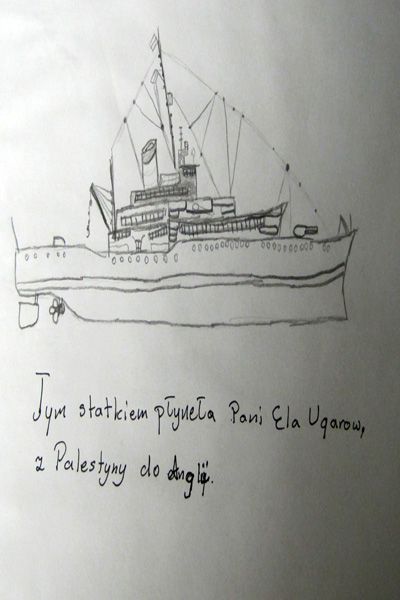 Tym statkiem płyneła Pani Ela Ugarow,
z Palestyny do Anglii.